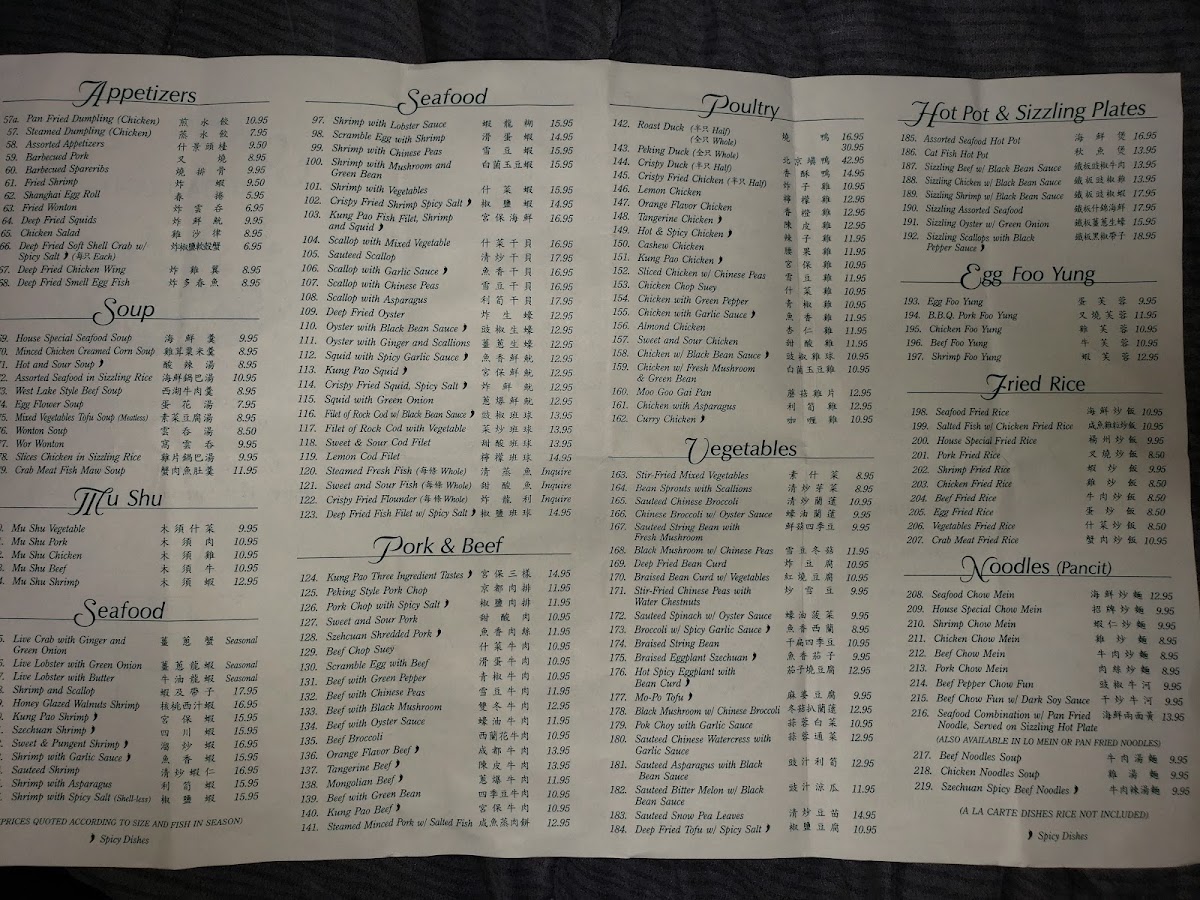 Appetizers
57a. Pan Fried Dumpling (Chicken) 煎水餃 10.95
57. Steamed Dumpling (Chicken) 蒸水餃 7.95
58. Assorted Appetizers 什景頭檯 9.50
59. Barbecued Pork 叉燒 8.95
60. Barbecued Spareribs 燒排骨 9.95
61. Fried Shrimp 炸蝦 9.50
62. Shanghai Egg Roll 春捲 5.95
63. Fried Wonton 炸雲吞 6.95
64. Deep Fried Squids 炸鮮魷 9.95
65. Chicken Salad 雞沙律 8.95
66. Deep Fried Soft Shell Crab w/ 炸椒鹽軟殼蟹 6.95
Spicy Salt (每只 Each)
67. Deep Fried Chicken Wing 炸雞翼 8.95
68. Deep Fried Smell Egg Fish 炸多春魚 8.95
Soup
69. House Special Seafood Soup 海鮮羹 9.95
70. Minced Chicken Creamed Corn Soup 雞茸粟米羹 8.95
71. Hot and Sour Soup 酸辣湯 8.95
72. Assorted Seafood in Sizzling Rice 海鮮鍋巴湯 10.95
73. West Lake Style Beef Soup 西湖牛肉羹 8.95
74. Egg Flower Soup 蛋花湯 7.95
75. Mixed Vegetables Tofu Soup (Meatless) 素菜豆腐湯 8.95
76. Wonton Soup 雲吞湯 8.50
77. Wor Wonton 窩雲吞 9.95
78. Slices Chicken in Sizzling Rice 雞片鍋巴湯 9.95
79. Crab Meat Fish Maw Soup 蟹肉魚肚羹 11.95
Mu Shu
Mu Shu Vegetable 木須什菜 9.95
Mu Shu Pork 木須肉 10.95
Mu Shu Chicken 木須雞 10.95
Mu Shu Beef 木須牛 10.95
Mu Shu Shrimp 木須蝦 12.95
Seafood
Live Crab with Ginger and 薑蔥蟹 Seasonal
Green Onion
Live Lobster with Green Onion 薑蔥龍蝦 Seasonal
Live Lobster with Butter 牛油龍蝦 Seasonal
Shrimp and Scallop 蝦及帶子 17.95
Honey Glazed Walnuts Shrimp 核桃西汁蝦 16.95
Kung Pao Shrimp 宮保蝦 15.95
Szechuan Shrimp 四川蝦 15.95
Sweet & Pungent Shrimp 溜炒蝦 16.95
Shrimp with Garlic Sauce 魚香蝦 15.95
Sauteed Shrimp 清炒蝦仁 16.95
Shrimp with Asparagus 利筍蝦 15.95
Shrimp with Spicy Salt (Shell-less) 椒鹽蝦 15.95
(PRICES QUOTED ACCORDING TO SIZE AND FISH IN SEASON)
Spicy Dishes
Seafood
97. Shrimp with Lobster Sauce 蝦龍糊 15.95
98. Scramble Egg with Shrimp 滑蛋蝦 14.95
99. Shrimp with Chinese Peas 雪豆蝦 15.95
100. Shrimp with Mushroom and 白菌玉豆蝦 15.95
Green Bean
101. Shrimp with Vegetables 什菜蝦 15.95
102. Crispy Fried Shrimp Spicy Salt 椒鹽蝦 14.95
103. Kung Pao Fish Filet, Shrimp 宮保海鮮 16.95
and Squid
104. Scallop with Mixed Vegetable 什菜干貝 16.95
105. Sauteed Scallop 清炒干貝 17.95
106. Scallop with Garlic Sauce 魚香干貝 16.95
107. Scallop with Chinese Peas 雪豆干貝 16.95
108. Scallop with Asparagus 利筍干貝 17.95
109. Deep Fried Oyster 炸生蠔 12.95
110. Oyster with Black Bean Sauce 豉椒生蠔 12.95
111. Oyster with Ginger and Scallions 薑蔥生蠔 12.95
112. Squid with Spicy Garlic Sauce 魚香鮮魷 12.95
113. Kung Pao Squid 宮保鮮魷 12.95
114. Crispy Fried Squid, Spicy Salt 炸鮮魷 12.95
115. Squid with Green Onion 蔥爆鮮魷 12.95
116. Filet of Rock Cod w/ Black Bean Sauce 豉椒班球 13.95
117. Filet of Rock Cod with Vegetable 菜炒班球 13.95
118. Sweet & Sour Cod Filet 甜酸班球 13.95
119. Lemon Cod Filet 檸檬班球 14.95
120. Steamed Fresh Fish (每條 Whole) 清蒸魚 Inquire
121. Sweet and Sour Fish (每條 Whole) 甜酸魚 Inquire
122. Crispy Fried Flounder (每條 Whole) 炸龍利 Inquire
123. Deep Fried Fish Filet w/ Spicy Salt 椒鹽班球 14.95
Pork & Beef
124. Kung Pao Three Ingredient Tastes 宮保三樣 14.95
125. Peking Style Pork Chop 京都肉排 11.95
126. Pork Chop with Spicy Salt 椒鹽肉排 11.95
127. Sweet and Sour Pork 甜酸肉 10.95
128. Szehcuan Shredded Pork 魚香肉絲 11.95
129. Beef Chop Suey 什菜牛肉 11.95
130. Scramble Egg with Beef 滑蛋牛肉 10.95
131. Beef with Green Pepper 青椒牛肉 10.95
132. Beef with Chinese Peas 雪豆牛肉 11.95
133. Beef with Black Mushroom 雙冬牛肉 12.95
134. Beef with Oyster Sauce 蠔油牛肉 11.95
135. Beef Broccoli 西蘭花牛肉 10.95
136. Orange Flavor Beef 成都牛肉 13.95
137. Tangerine Beef 陳皮牛肉 13.95
138. Mongolian Beef 蔥爆牛肉 11.95
139. Beef with Green Bean 四季豆牛肉 10.95
140. Kung Pao Beef 宮保牛肉 10.95
141. Steamed Minced Pork w/ Salted Fish 咸魚蒸肉餅 12.95
Poultry
142. Roast Duck (半只 Half) 燒鴨 16.95
(全只 Whole) 30.95
143. Peking Duck (全只 Whole) 北京填鴨 42.95
144. Crispy Duck (半只 Half) 香酥鴨 14.95
145. Crispy Fried Chicken (半只 Half) 炸子雞 10.95
146. Lemon Chicken 檸檬雞 12.95
147. Orange Flavor Chicken 香橙雞 12.95
148. Tangerine Chicken 陳皮雞 12.95
149. Hot & Spicy Chicken 辣子雞 11.95
150. Cashew Chicken 腰果雞 11.95
151. Kung Pao Chicken 宮保雞 10.95
152. Sliced Chicken w/ Chinese Peas 雪豆雞 11.95
153. Chicken Chop Suey 什菜雞 10.95
154. Chicken with Green Pepper 青椒雞 10.95
155. Chicken with Garlic Sauce 魚香雞 11.95
156. Almond Chicken 杏仁雞 11.95
157. Sweet and Sour Chicken 甜酸雞 11.95
158. Chicken w/ Black Bean Sauce 豉椒雞球 10.95
159. Chicken w/ Fresh Mushroom 白菌玉豆雞 10.95
& Green Bean
160. Moo Goo Gai Pan 蘑菇雞片 12.95
161. Chicken with Asparagus 利筍雞 12.95
162. Curry Chicken 咖喱雞 10.95
Vegetables
163. Stir-Fried Mixed Vegetables 素什菜 8.95
164. Bean Sprouts with Scallions 清炒芽菜 8.95
165. Sauteed Chinese Broccoli 清炒蘭蓬 10.95
166. Chinese Broccoli w/ Oyster Sauce 蠔油蘭蓬 9.95
167. Sauteed String Bean with 鮮菇四季豆 9.95
Fresh Mushroom
168. Black Mushroom w/ Chinese Peas 雪豆冬菇 11.95
169. Deep Fried Bean Curd 炸豆腐 10.95
170. Braised Bean Curd w/ Vegetables 紅燒豆腐 10.95
171. Stir-Fried Chinese Peas with 炒雪豆 9.95
Water Chestnuts
172. Sauteed Spinach w/ Oyster Sauce 蠔油菠菜 9.95
173. Broccoli w/ Spicy Garlic Sauce 魚香西蘭 8.95
174. Braised String Bean 干扁四季豆 10.95
175. Braised Eggplant Szechuan 魚香茄子 9.95
176. Hot Spicy Eggplant with 茄子燒豆腐 12.95
Bean Curd
177. Mo-Po Tofu 麻婆豆腐 9.95
178. Black Mushroom w/ Chinese Broccoli 冬菇扒蘭蓬 12.95
179. Pok Choy with Garlic Sauce 蒜蓉白菜 10.95
180. Sauteed Chinese Watercress with 蒜蓉通菜 12.95
Garlic Sauce
181. Sauteed Asparagus with Black 豉汁利筍 12.95
Bean Sauce
182. Sauteed Bitter Melon w/ Black 豉汁涼瓜 11.95
Bean Sauce
183. Sauteed Snow Pea Leaves 清炒豆苗 14.95
184. Deep Fried Tofu w/ Spicy Salt 椒鹽豆腐 10.95
Hot Pot & Sizzling Plates
185. Assorted Seafood Hot Pot 海鮮煲 16.95
186. Cat Fish Hot Pot 秋魚煲 13.95
187. Sizzling Beef w/ Black Bean Sauce 鐵板豉椒牛肉 13.95
188. Sizzling Chicken w/ Black Bean Sauce 鐵板豉椒雞 13.95
189. Sizzling Shrimp w/ Black Bean Sauce 鐵板豉椒蝦 17.95
190. Sizzling Assorted Seafood 鐵板什錦海鮮 17.95
191. Sizzling Oyster w/ Green Onion 鐵板薑蔥生蠔 15.95
192. Sizzling Scallops with Black 鐵板黑椒帶子 18.95
Pepper Sauce
Egg Foo Yung
193. Egg Foo Yung 蛋芙蓉 9.95
194. B.B.Q. Pork Foo Yung 叉燒芙蓉 11.95
195. Chicken Foo Yung 雞芙蓉 10.95
196. Beef Foo Yung 牛芙蓉 10.95
197. Shrimp Foo Yung 蝦芙蓉 12.95
Fried Rice
198. Seafood Fried Rice 海鮮炒飯 10.95
199. Salted Fish w/ Chicken Fried Rice 咸魚雞粒炒飯 10.95
200. House Special Fried Rice 楊州炒飯 9.95
201. Pork Fried Rice 叉燒炒飯 8.50
202. Shrimp Fried Rice 蝦炒飯 9.95
203. Chicken Fried Rice 雞炒飯 8.50
204. Beef Fried Rice 牛肉炒飯 8.50
205. Egg Fried Rice 蛋炒飯 8.50
206. Vegetables Fried Rice 什菜炒飯 8.50
207. Crab Meat Fried Rice 蟹肉炒飯 10.95
Noodles (Pancit)
208. Seafood Chow Mein 海鮮炒麵 12.95
209. House Special Chow Mein 招牌炒麵 9.95
210. Shrimp Chow Mein 蝦仁炒麵 9.95
211. Chicken Chow Mein 雞炒麵 8.95
212. Beef Chow Mein 牛肉炒麵 8.95
213. Pork Chow Mein 肉絲炒麵 8.95
214. Beef Pepper Chow Fun 豉椒牛河 9.95
215. Beef Chow Fun w/ Dark Soy Sauce 干炒牛河 9.95
216. Seafood Combination w/ Pan Fried 海鮮兩面黃 13.95
Noodle, Served on Sizzling Hot Plate
(ALSO AVAILABLE IN LO MEIN OR PAN FRIED NOODLES)
217. Beef Noodles Soup 牛肉湯麵 9.95
218. Chicken Noodles Soup 雞湯麵 9.95
219. Szechuan Spicy Beef Noodles 牛肉辣湯麵 9.95
(A LA CARTE DISHES RICE NOT INCLUDED)
Spicy Dishes